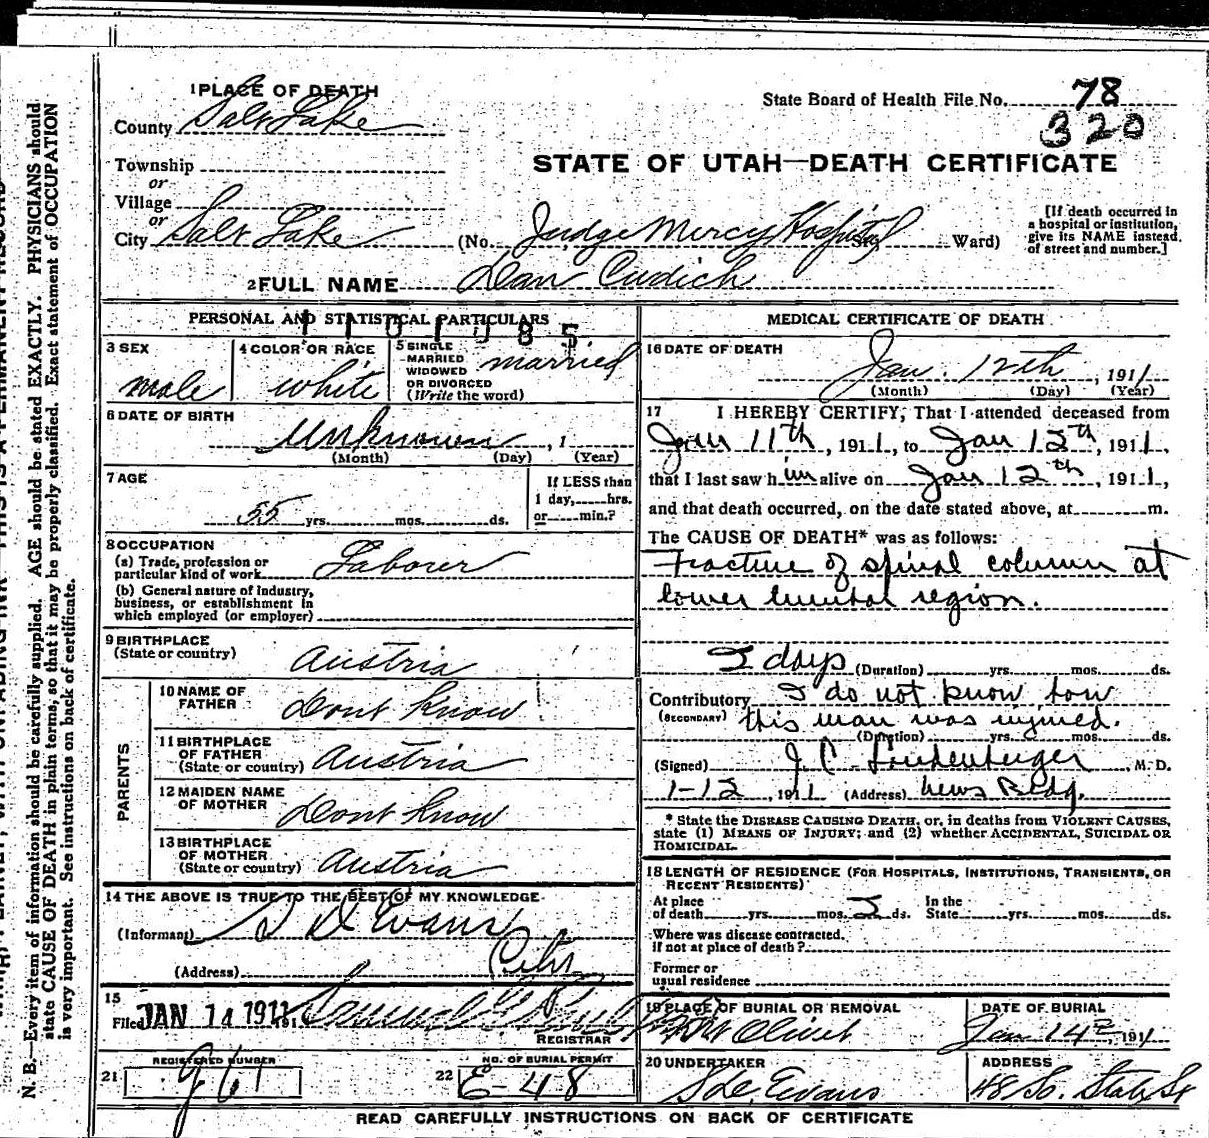 1 PLACE OF DEATH
County Salt Lake
Township
or
Village
or
City Salt Lake (No. Judge Mercy Hospital St. Ward)
State Board of Health File No. 78
320
STATE OF UTAH—DEATH CERTIFICATE
[If death occurred in
a hospital or institution,
give its NAME instead
of street and number.]
2 FULL NAME Dan Cudich
PERSONAL AND STATISTICAL PARTICULARS
3 SEX
male
4 COLOR OR RACE
white
5 SINGLE
MARRIED
WIDOWED
OR DIVORCED
(Write the word)
married
6 DATE OF BIRTH
Unknown, 1
(Month) (Day) (Year)
7 AGE
55 yrs. mos. ds.
If LESS than
1 day, hrs.
or min.?
8 OCCUPATION
(a) Trade, profession or
particular kind of work Laborer
(b) General nature of industry,
business, or establishment in
which employed (or employer)
9 BIRTHPLACE
(State or country) Austria
PARENTS
10 NAME OF
FATHER Dont Know
11 BIRTHPLACE
OF FATHER
(State or country) Austria
12 MAIDEN NAME
OF MOTHER Dont Know
13 BIRTHPLACE
OF MOTHER
(State or country) Austria
14 THE ABOVE IS TRUE TO THE BEST OF MY KNOWLEDGE
(Informant) S D Evans
(Address) City
15
Filed JAN 14 1911
REGISTRAR
REGISTERED NUMBER
21 961
NO. OF BURIAL PERMIT
22 E-48
MEDICAL CERTIFICATE OF DEATH
16 DATE OF DEATH
Jan. 12th, 1911
(Month) (Day) (Year)
17 I HEREBY CERTIFY, That I attended deceased from
Jan 11th, 1911, to Jan 12th, 1911,
that I last saw him alive on Jan 12th, 1911,
and that death occurred, on the date stated above, at m.
The CAUSE OF DEATH* was as follows:
Fracture of spinal column at
lower lumbar region.
2 days (Duration) yrs. mos. ds.
Contributory I do not know how
(SECONDARY) this man was injured.
(Duration) yrs. mos. ds.
(Signed) J. C. , M. D.
1-12, 1911 (Address) News Bldg.
* State the DISEASE CAUSING DEATH, or, in deaths from VIOLENT CAUSES,
state (1) MEANS OF INJURY; and (2) whether ACCIDENTAL, SUICIDAL OR
HOMICIDAL.
18 LENGTH OF RESIDENCE (FOR HOSPITALS, INSTITUTIONS, TRANSIENTS, OR
RECENT RESIDENTS)
At place
of death yrs. mos. 2 ds.
In the
State yrs. mos. ds.
Where was disease contracted,
if not at place of death?
Former or
usual residence
19 PLACE OF BURIAL OR REMOVAL
Mt Olivet
DATE OF BURIAL
Jan 14th, 1911
20 UNDERTAKER
S. D. Evans
ADDRESS
48 So. State St
READ CAREFULLY INSTRUCTIONS ON BACK OF CERTIFICATE
N. B.—Every item of information should be carefully supplied. AGE should be stated EXACTLY. PHYSICIANS should
state CAUSE OF DEATH in plain terms, so that it may be properly classified. Exact statement of OCCUPATION
is very important. See instructions on back of certificate.